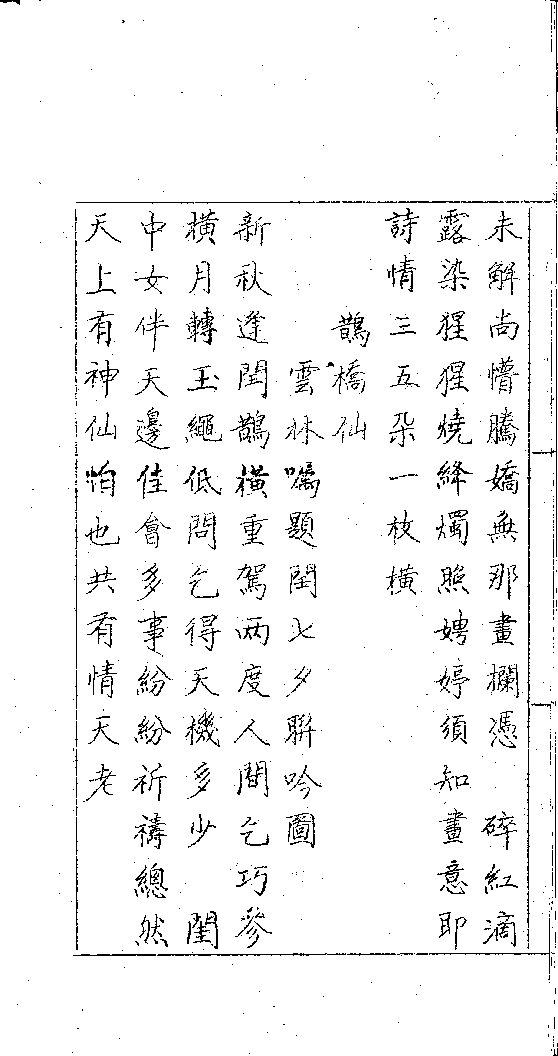 未解尚懵騰嬌無那畫欄憑　碎紅滴
露染猩猩燒絳燭照娉婷須知畫意即
詩情三五朶一枚橫
鵲橋仙
雲林囑題閏七夕聯吟圖
新秋逢閏鵲橫重駕兩度人間乞巧參
橫月轉玉繩低問乞得天機多少　閨
中女伴天邊佳會多事紛紛祈禱總然
天上有神仙怕也共有情天老